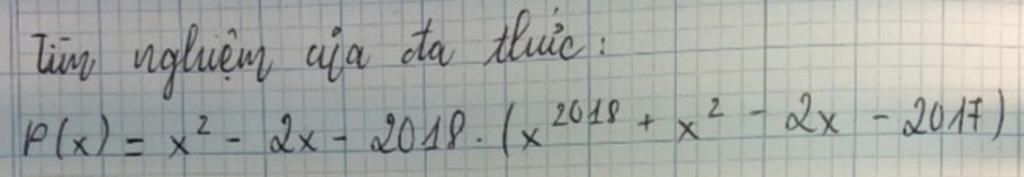 Tìm nghiệm của đa thức:
P(x) = x² - 2x - 2018. (x²⁰¹⁸ + x² - 2x - 2017)